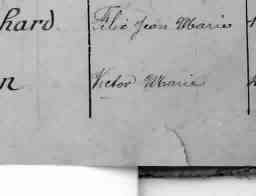 hard. Félix Jean Marie
n Victor Marie